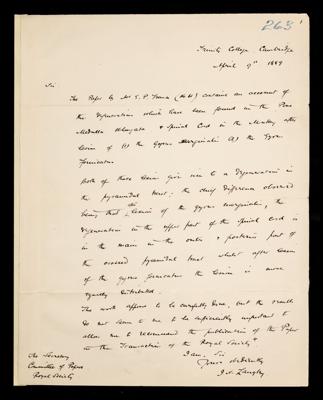 263
1
Trinity College Cambridge
April 9th 1889
Sir
The Paper by Mr E. P. France contains an account of
the degenerations which have been found in the Pons
Medulla Oblongata & Spinal Cord in the Monkey after
lesion of (1) the Gyrus Marginalis (2) the Gyrus
Fornicatus.
Both of these lesions give rise to a degeneration in
the pyramidal tract; the chief difference observed
being that in lesion of the gyrus marginalis, the
degeneration in the upper part of the spinal cord is
in the main in the outer & posterior part of
the crossed pyramidal tract whilst after lesion
of the gyrus fornicatus the lesion is more
equally distributed.
The work appears to be carefully done, but the results
do not seem to me to be sufficiently important to
allow me to recommend the publication of the Paper
in the Transactions of the Royal Society.
I am, Sir
Yours obediently
J. N. Langley
The Secretary
Committee of Papers
Royal Society